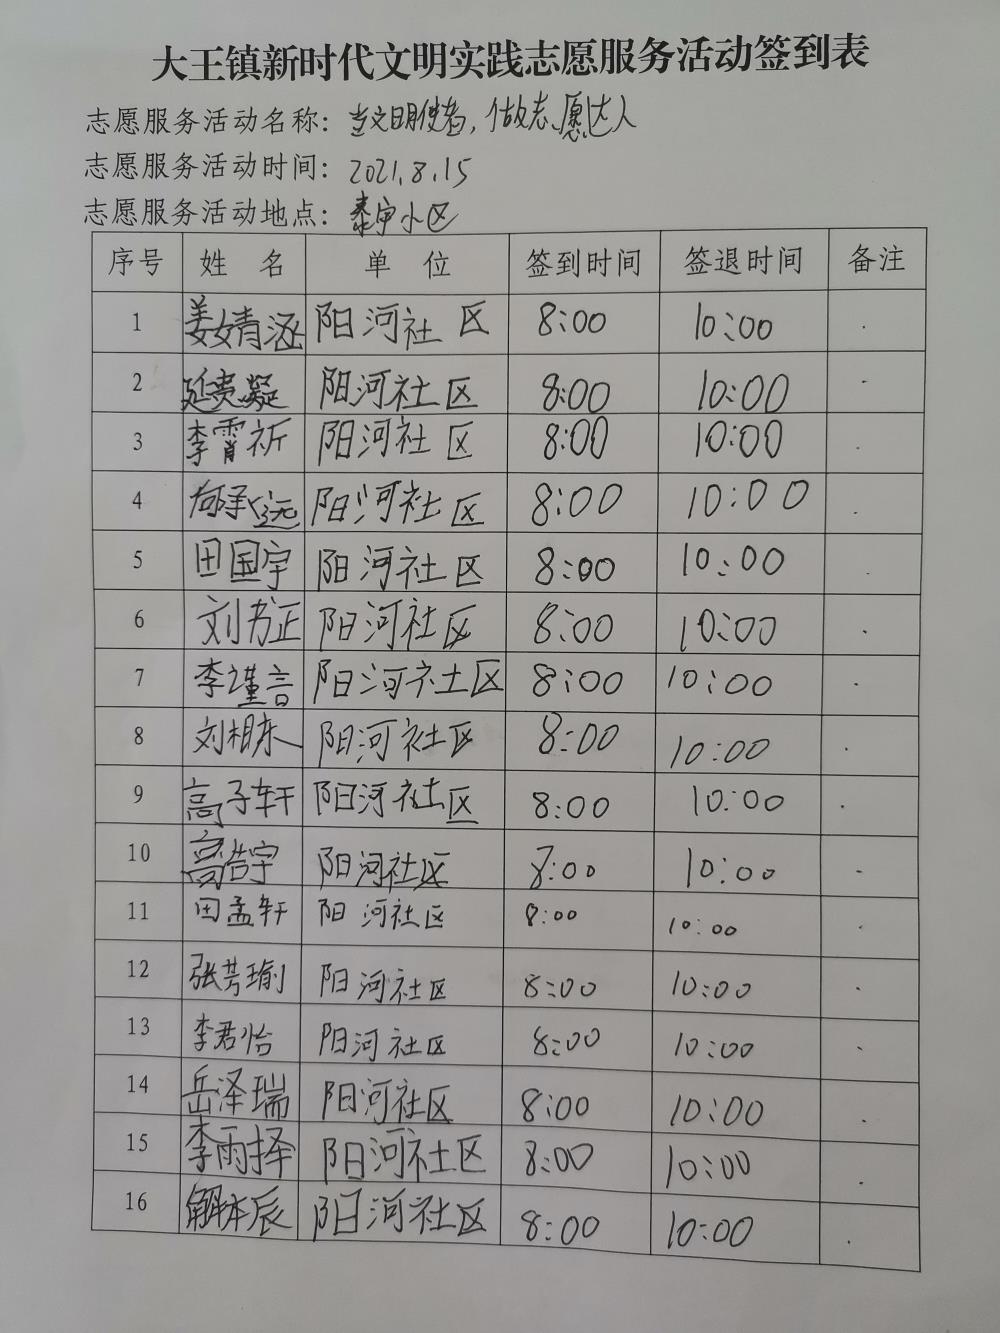 大王镇新时代文明实践志愿服务活动签到表
志愿服务活动名称：当文明使者，做志愿达人
志愿服务活动时间：2021.8.15
志愿服务活动地点：泰宇小区
序号 姓名 单位 签到时间 签退时间 备注
1 姜婧涵 阳河社区 8:00 10:00
2 延贵凝 阳河社区 8:00 10:00
3 李霄祈 阳河社区 8:00 10:00
4 阳河社区 8:00 10:00
5 田国宇 阳河社区 8:00 10:00
6 刘书正 阳河社区 8:00 10:00
7 李瑾言 阳河社区 8:00 10:00
8 刘相东 阳河社区 8:00 10:00
9 高子轩 阳河社区 8:00 10:00
10 高浩宇 阳河社区 8:00 10:00
11 田孟轩 阳河社区 8:00 10:00
12 张芳瑜 阳河社区 8:00 10:00
13 李君怡 阳河社区 8:00 10:00
14 岳泽瑞 阳河社区 8:00 10:00
15 李雨择 阳河社区 8:00 10:00
16 解本辰 阳河社区 8:00 10:00